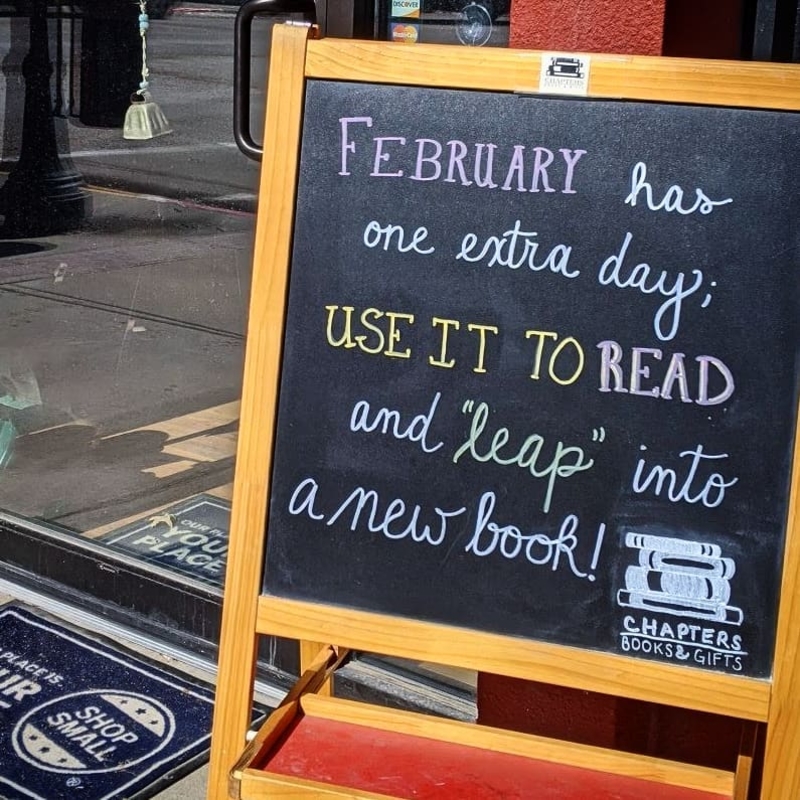 DISCOVER
MasterCard
CHAPTERS
FEBRUARY has
one extra day;
USE IT TO READ
and "leap" into
a new book!
CHAPTERS
BOOKS & GIFTS
OUR
YOU
PLACE
PLACE IS
UR
SHOP
SMALL
®